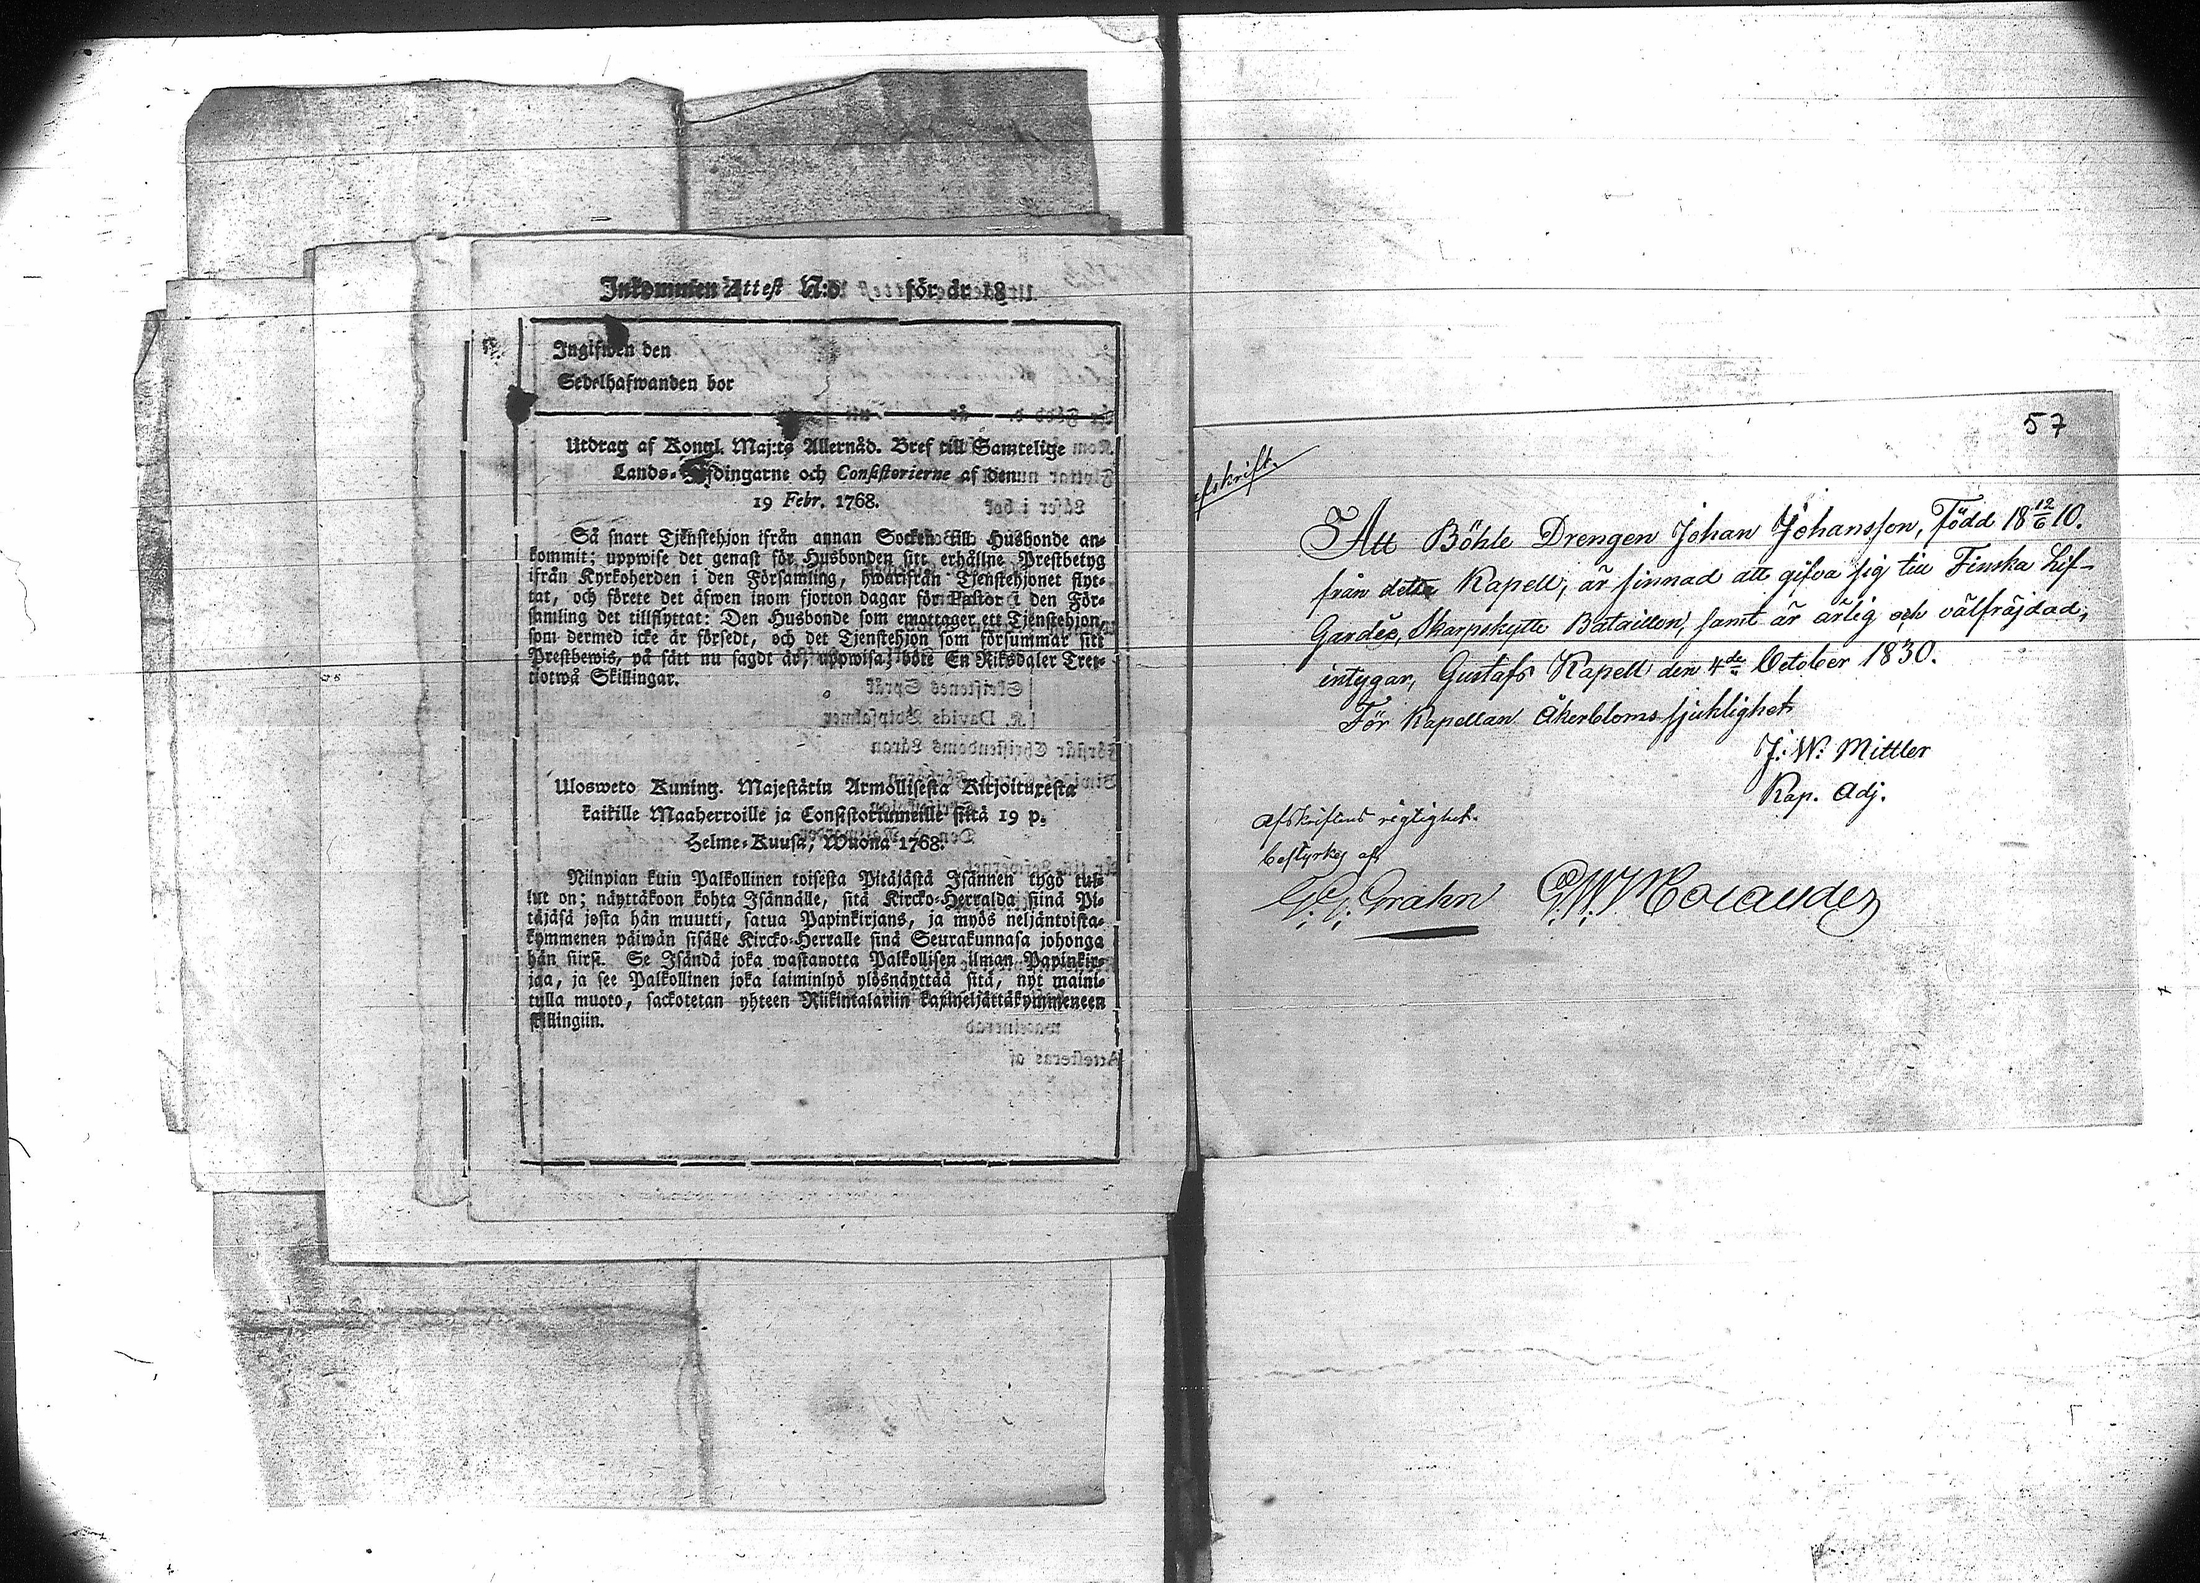 Inkommen Attest N:o för år 18
Ingifwen den
Sedelhafwanden bor
Utdrag af Kongl. Maj:ts Allernåd. Bref till Samtelige
Lands-Höfdingarne och Consistorierne af den
19 Febr. 1768.
Så snart Tjenstehjon ifrån annan Socken till Husbonde an-
kommit; uppwise det genast för Husbonden sitt erhållne Prestbetyg
ifrån Kyrkoherden i den Församling, hwarifrån Tjenstehjonet flyt-
tat, och förete det äfwen inom fjorton dagar för Pastor i den För-
samling det tillflyttat: Den Husbonde som emottager ett Tjenstehjon,
som dermed icke är försedt, och det Tjenstehjon som försummar sitt
Prestbewis, på sätt nu sagdt är, uppwisa; böte En Riksdaler Tret-
tiotwå Skillingar.
Ulosweto Kuning. Majestätin Armollisesta Kirjoituxesta
kaikille Maaherroille ja Consistoriumeille siitä 19 p.
Helme-Kuusa, Wuona 1768.
Niinpian kuin Palkollinen toisesta Pitäjästä Isännen tygö tul-
lut on; näyttäköön kohta Isännälle, sitä Kircko-Herralda siinä Pi-
täjäsä josta hän muutti, saatua Papinkirjans, ja myös neljäntoista-
kymmenen päiwän sisälle Kircko-Herralle siinä Seurakunnasa johonga
hän siirsi. Se Isändä joka wastanotta Palkollisen ilman Papinkir-
jaa, ja see Palkollinen joka laiminlyö ylösnäyttää sitä, nyt maini-
tulla muoto, sackotetan yhteen Riikintalariin kaxineljättäkymmeneen
skillingiin.
57
afskrift.
Att Böhle Drengen Johan Johansson, Född 18 12/6 10.
från detta Kapell, är sinnad att gifva sig till Finska Lif-
Gardes, Skarpskytte Bataillon, samt är ärlig och välfräjdad,
intygar, Gustafs Kapell den 4de October 1830.
För Kapellan Åkerbloms sjuklighet
J. W. Mittler
Kap. Adj.
Afskriftens rigtighet.
bestyrkes af
G. G. Grahn G. W. Molander